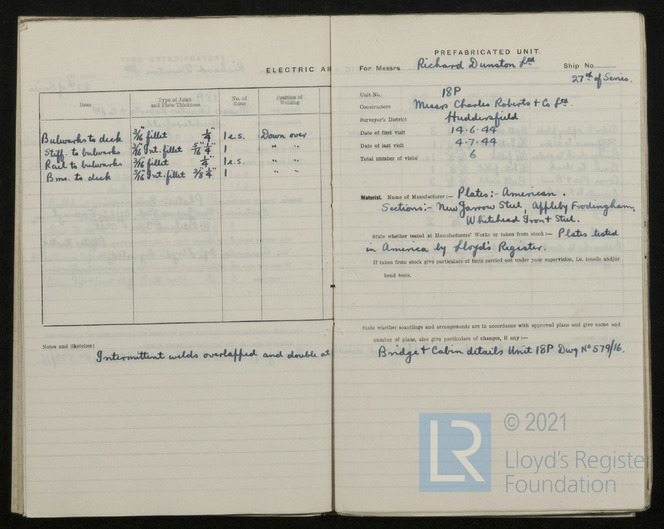 ELECTRIC AR
Item
Type of Joint and Plate Thickness
No. of Runs
Position of Welding
Bulwarks to deck 3/16 fillet 1/4" 1 e.s. Down over
Stiff. to bulwarks 3/16" Int. fillet 5/16" 1/4" 1 " "
Rail to bulwarks 3/16 fillet 1/4" 1 e.s. " "
Bms. to deck 3/16 Int. fillet 3/8" 1/4" 1 " "
Notes and Sketches:
Intermittent welds overlapped and double at
PREFABRICATED UNIT.
For Messrs. Richard Dunston Ltd Ship No.
27th of Series.
Unit No. 18P
Constructors Messrs Charles Roberts & Co Ltd.
Surveyor's District Huddersfield
Date of first visit 14.6.44
Date of last visit 4.7.44
Total number of visits 6
Material. Name of Manufacturer:— Plates:- American.
Sections:- New Jarrow Steel, Appleby Frodingham,
Whitehead Iron & Steel.
State whether tested at Manufacturers' Works or taken from stock:— Plates tested
in America by Lloyd's Register.
If taken from stock give particulars of tests carried out under your supervision, i.e. tensile and/or
bend tests.
State whether scantlings and arrangements are in accordance with approved plans and give name and
number of plans, also give particulars of changes, if any:—
Bridge & Cabin details Unit 18P Dwg No 579/16.
LR
© 2021
Lloyd's Register
Foundation